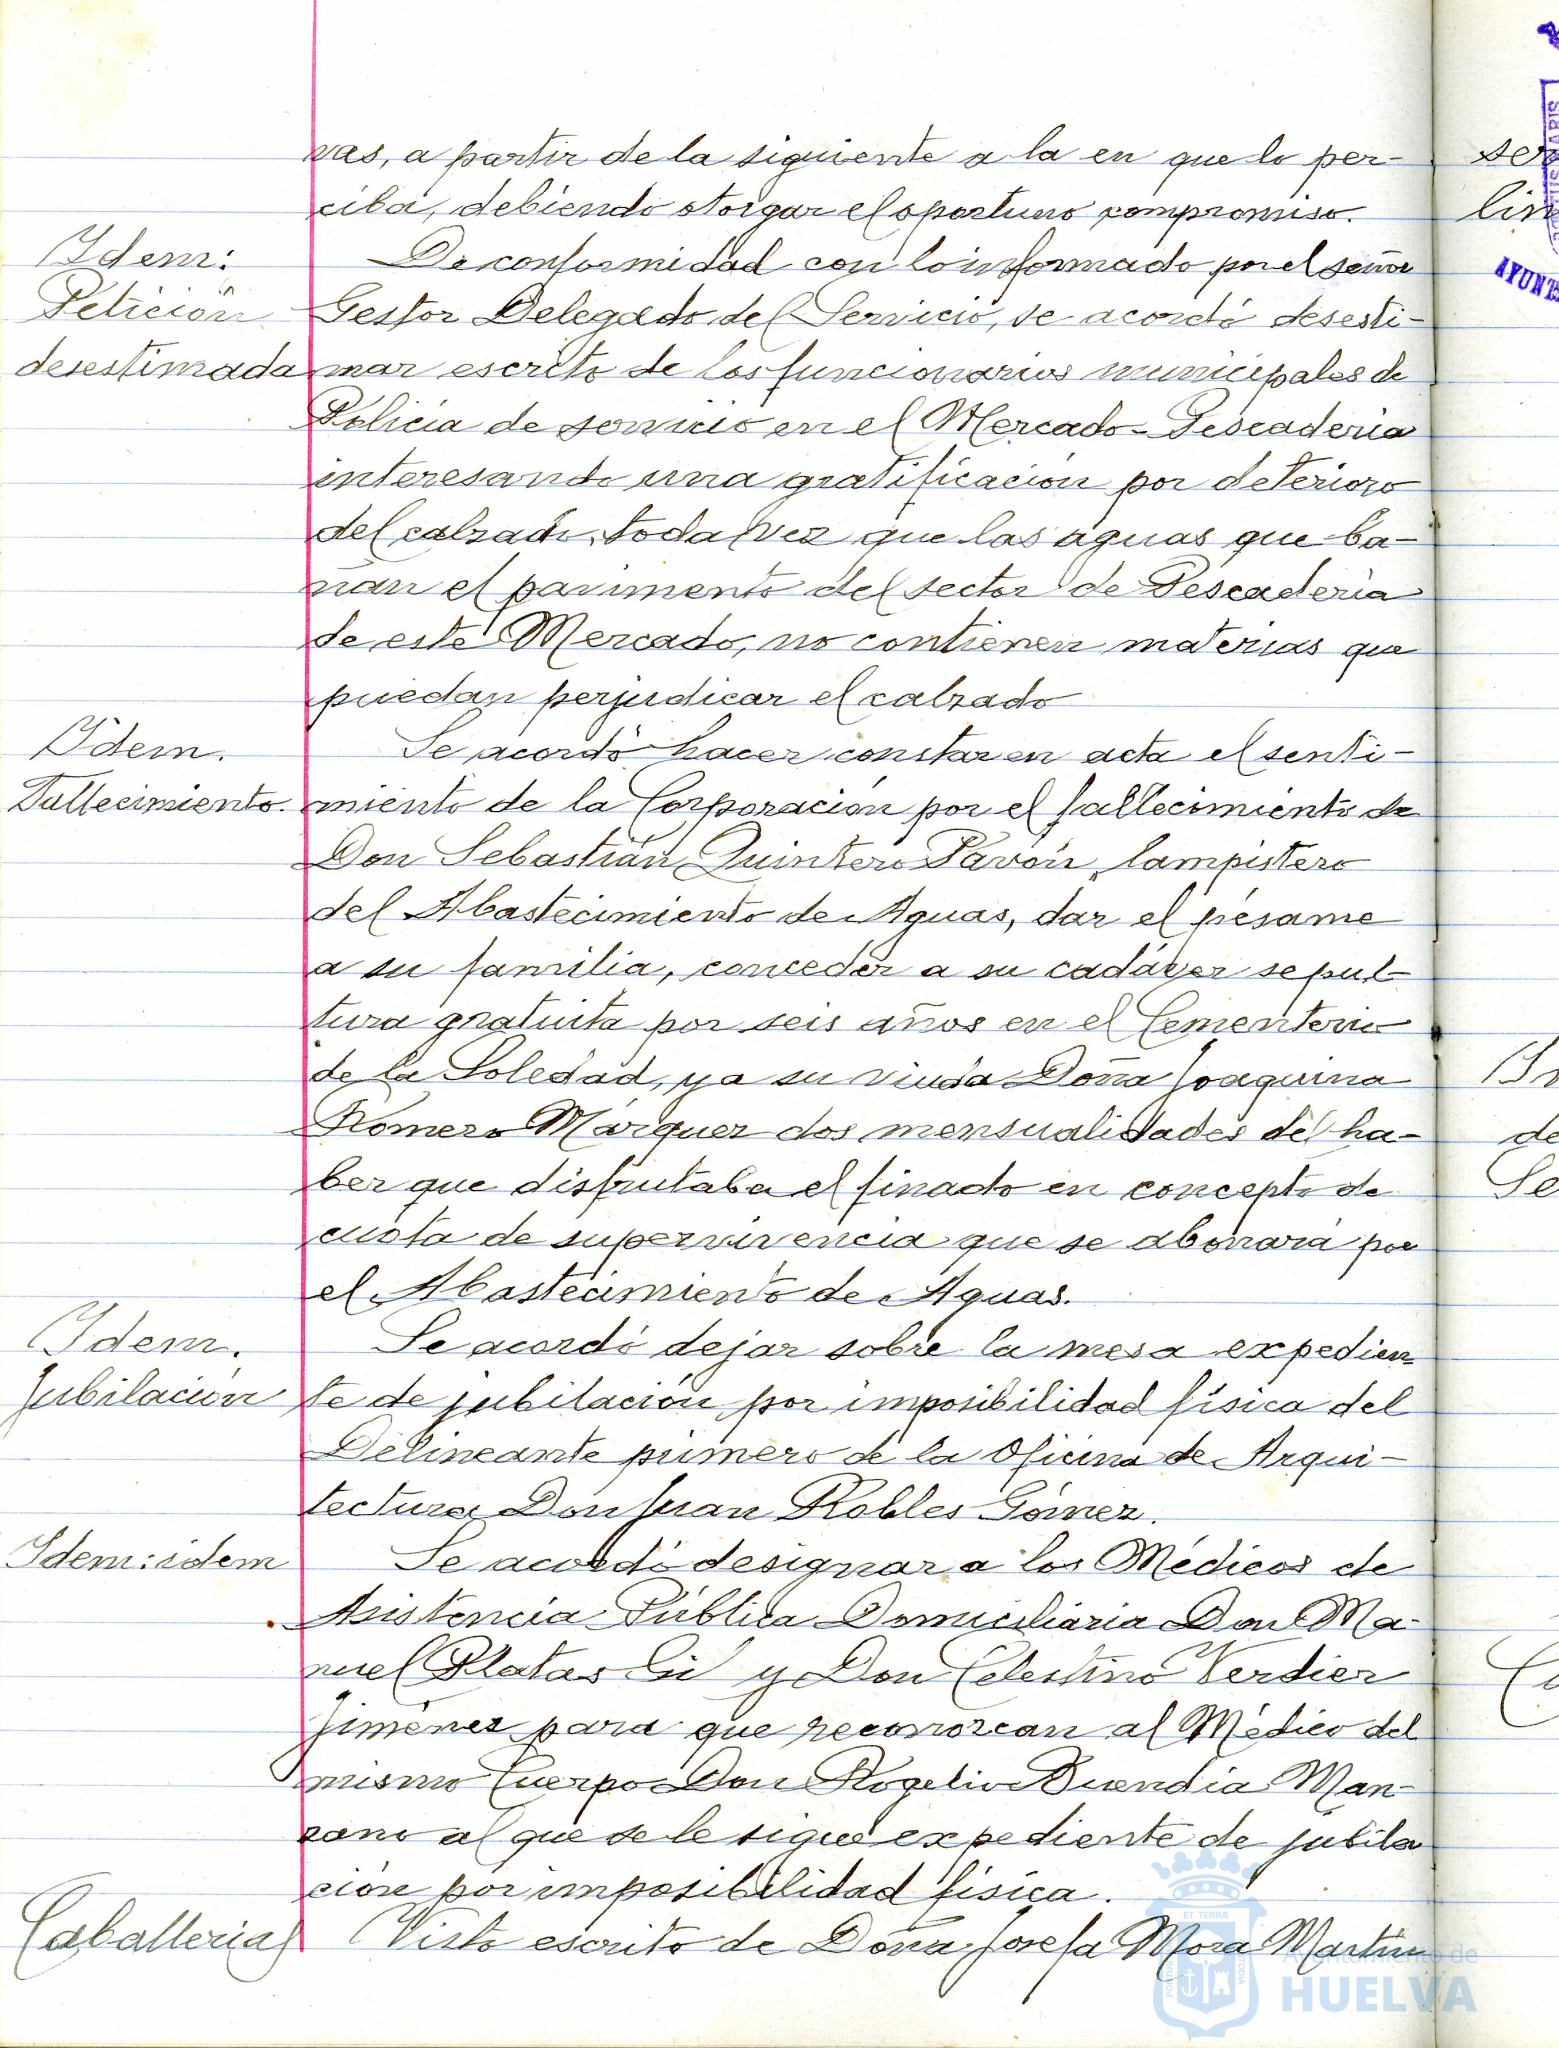 vas, a partir de la siguiente a la en que lo per-
ciba, debiendo otorgar el oportuno compromiso.
Idem:
Petición
desestimada
De conformidad con lo informado por el señor
Gestor Delegado del Servicio, se acordó desesti-
mar escrito de los funcionarios municipales de
Policía de servicio en el Mercado-Pescadería
interesando una gratificación por deterioro
del calzado, toda vez que las aguas que ba-
ñan el pavimento del sector de Pescadería
de este Mercado, no contienen materias que
puedan perjudicar el calzado
Idem.
Fallecimiento.
Se acordó hacer constar en acta el senti-
miento de la Corporación por el fallecimiento de
Don Sebastián Quintero Pavón, lampistero
del Abastecimiento de Aguas, dar el pésame
a su familia, conceder a su cadáver sepul-
tura gratuita por seis años en el Cementerio
de la Soledad, y a su viuda Doña Joaquina
Romero Márquez dos mensualidades del ha-
ber que disfrutaba el finado en concepto de
cuota de supervivencia que se abonará por
el Abastecimiento de Aguas.
Idem.
Jubilación
Se acordó dejar sobre la mesa expedien
te de jubilación por imposibilidad física del
Delineante primero de la Oficina de Arqui-
tectura Don Juan Robles Gómez.
Idem: idem
Se acordó designar a los Médicos de
Asistencia Pública Domiciliaria Don Ma-
nuel Platas Gil y Don Celestino Verdier
Jiménez para que reconozcan al Médico del
mismo Cuerpo Don Rogelio Buendía Man-
zano al que se le sigue expediente de jubila
ción por imposibilidad física.
Caballerías
Visto escrito de Doña Josefa Mora Martín
Ayuntamiento de
HUELVA